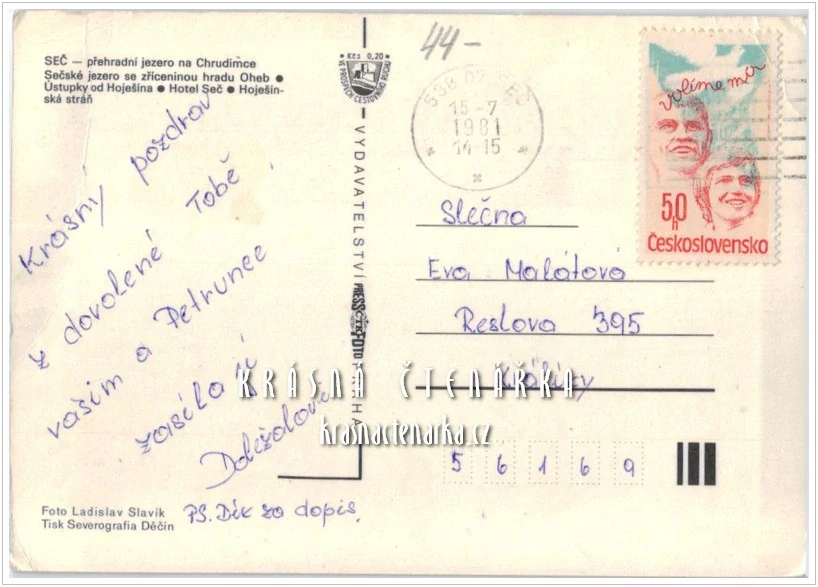 SEČ — přehradní jezero na Chrudimce
Sečské jezero se zříceninou hradu Oheb ●
Ústupky od Hoješína ● Hotel Seč ● Hoješín-
ská stráň
Kčs 0,20
VE PROSPĚCH CESTOVNÍHO RUCHU
44-
538 07 SEČ
15-7
1981
14-15
volíme mír
50
h
Československo
Krásný pozdrav
z dovolené Tobě,
vašim a Petrunce
zasílají
Doležalovi
PS. Dík za dopis.
VYDAVATELSTVÍ PRESSFOTO PRAHA
Slečna
Eva Malátová
Reslova 395
Králíky
56169
KRÁSNÁ ČTENÁŘKA
krasnactenarka.cz
Foto Ladislav Slavík
Tisk Severografia Děčín